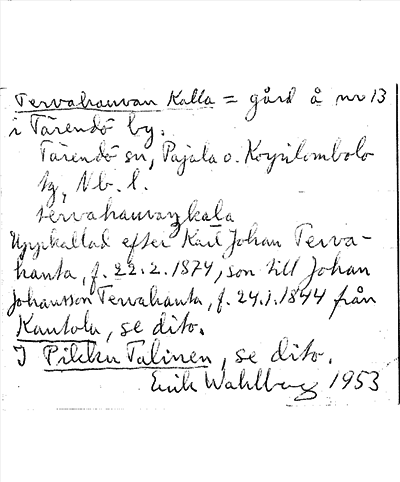 Tervahauvan Kalla = gård å nr 13
i Tärendö by.
Tärendö sn, Pajala o. Korpilombolo
tg, Nb. l.
tervahauvaŋkala
Uppkallad efter Karl Johan Terva-
hauta, f. 22.2.1874, son till Johan
Johansson Tervahauta, f. 24.1.1844 från
Kantola, se dito.
I Pikku Talinen, se dito.
Erik Wahlberg 1953